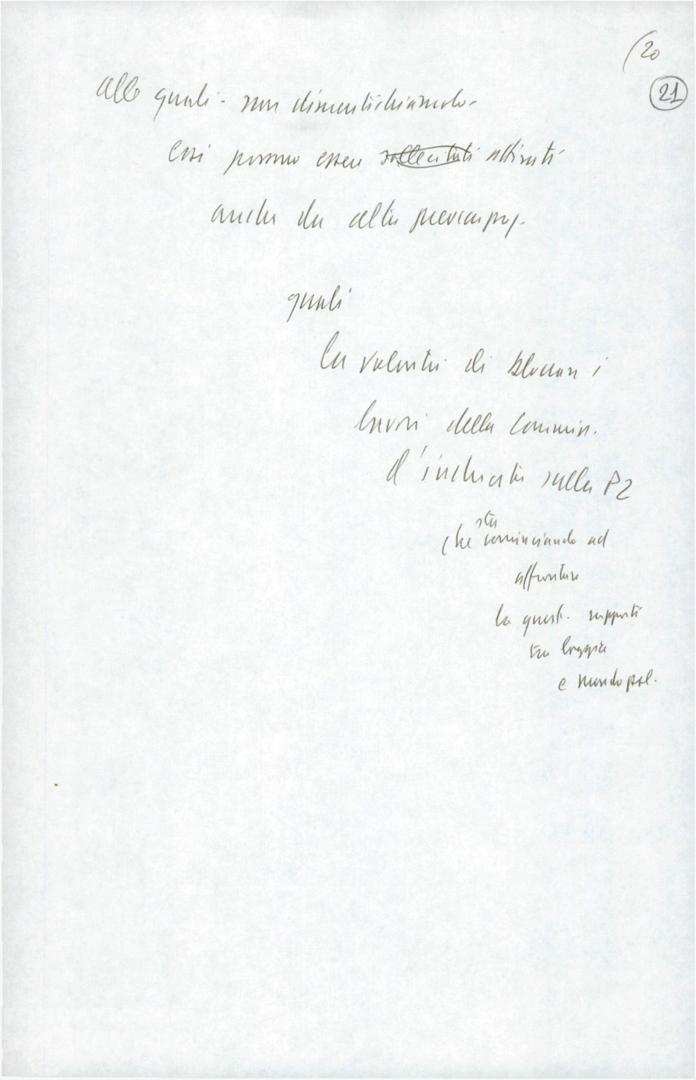 (20
21
alle quali - non dimentichiamolo -
essi possono essere sollecitati attirati
anche da altre preoccup.
quali
la volontà di bloccare i
lavori della Commiss.
d'inchiesta sulla P2
che sta cominciando ad
affrontare
la quest. rapporti
tra loggia
e mondo pol.